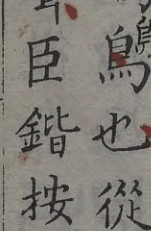 鳥也從
臣鍇按